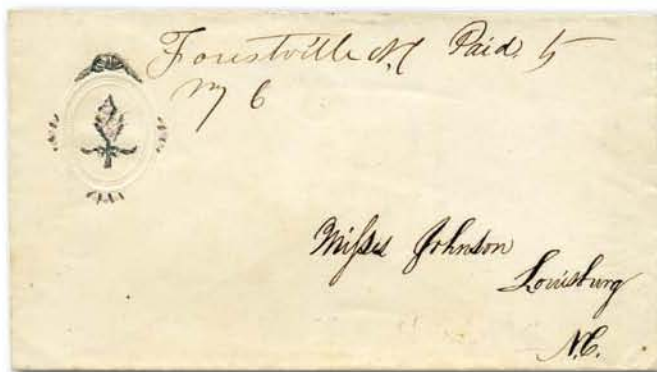 Forestville N.C Paid. 5
My 6
Misses Johnson
Louisburg
N.C.